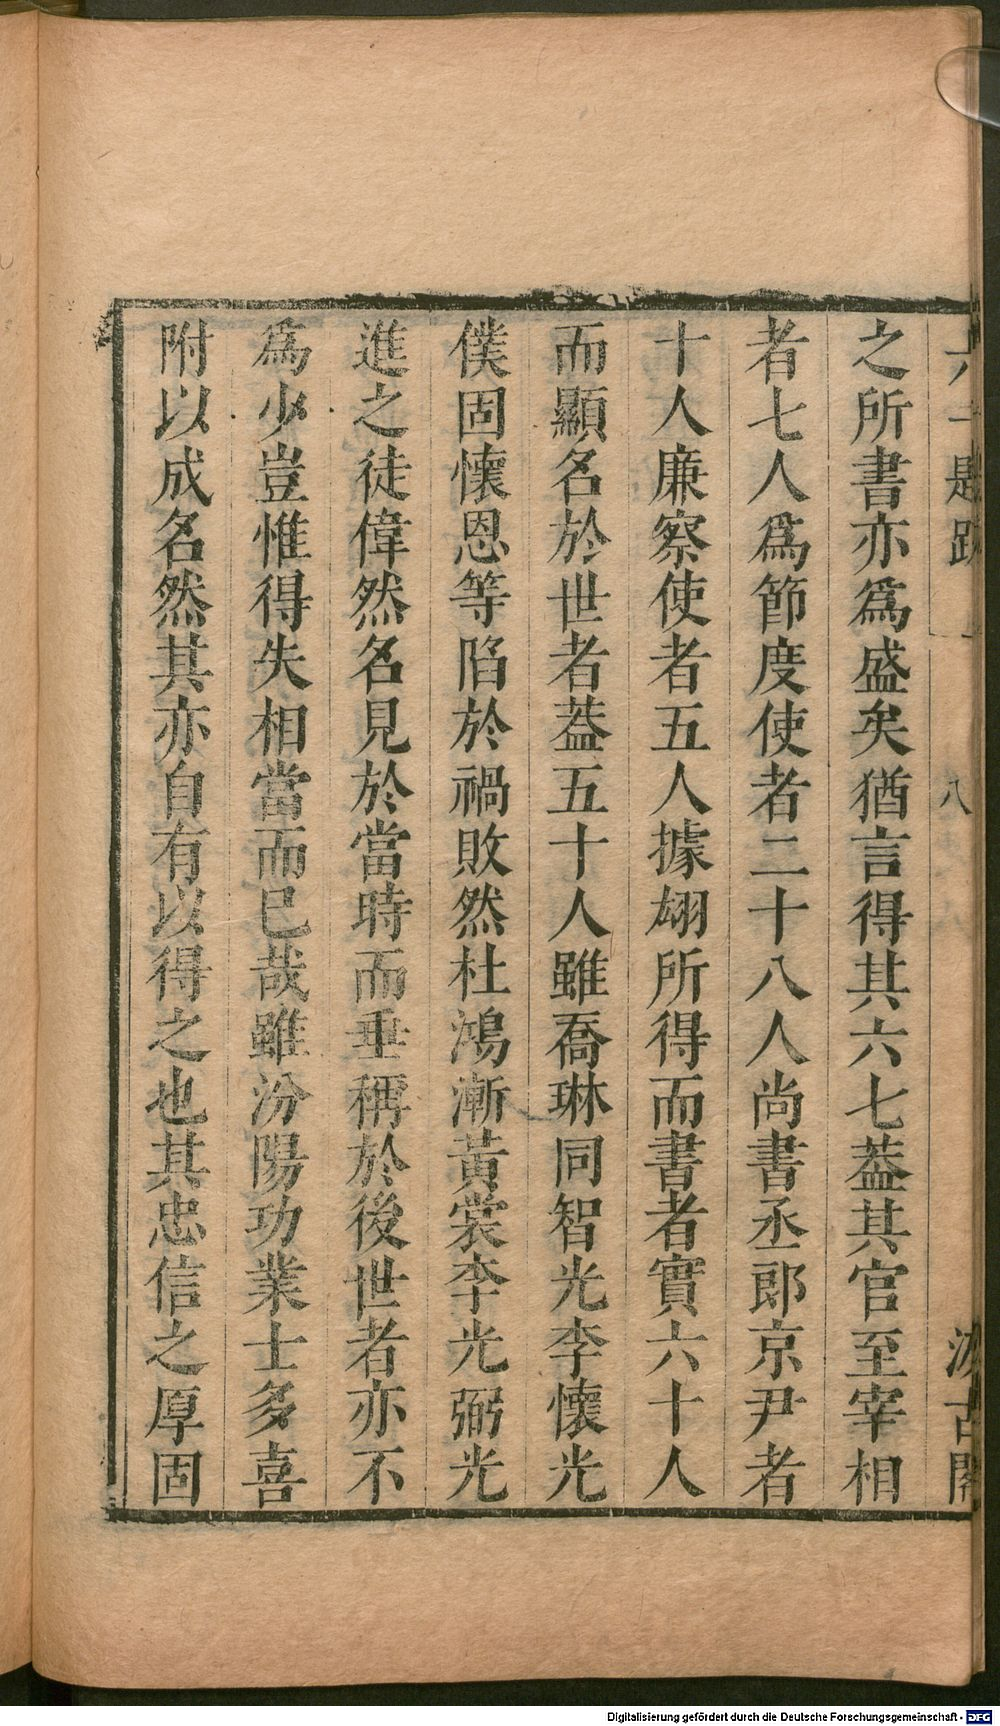 六一題跋
八
汲古閣
之所書亦爲盛矣猶言得其六七葢其官至宰相
者七人爲節度使者二十八人尚書丞郎京尹者
十人廉察使者五人據翃所得而書者實六十人
而顯名於世者葢五十人雖喬琳同智光李懷光
僕固懷恩等陷於禍敗然杜鴻漸黃裳李光弼光
進之徒偉然名見於當時而垂稱於後世者亦不
爲少豈惟得失相當而已哉雖汾陽功業士多喜
附以成名然其亦自有以得之也其忠信之厚固
Digitalisierung gefördert durch die Deutsche Forschungsgemeinschaft - DFG